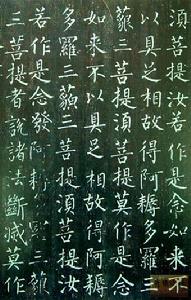 須菩提汝若作是念如來不
以具足相故得阿耨多羅三
藐三菩提須菩提莫作是念
如來不以具足相故得阿耨
多羅三藐三菩提須菩提汝
若作是念發阿耨多羅三藐
三菩提者說諸法斷滅莫作